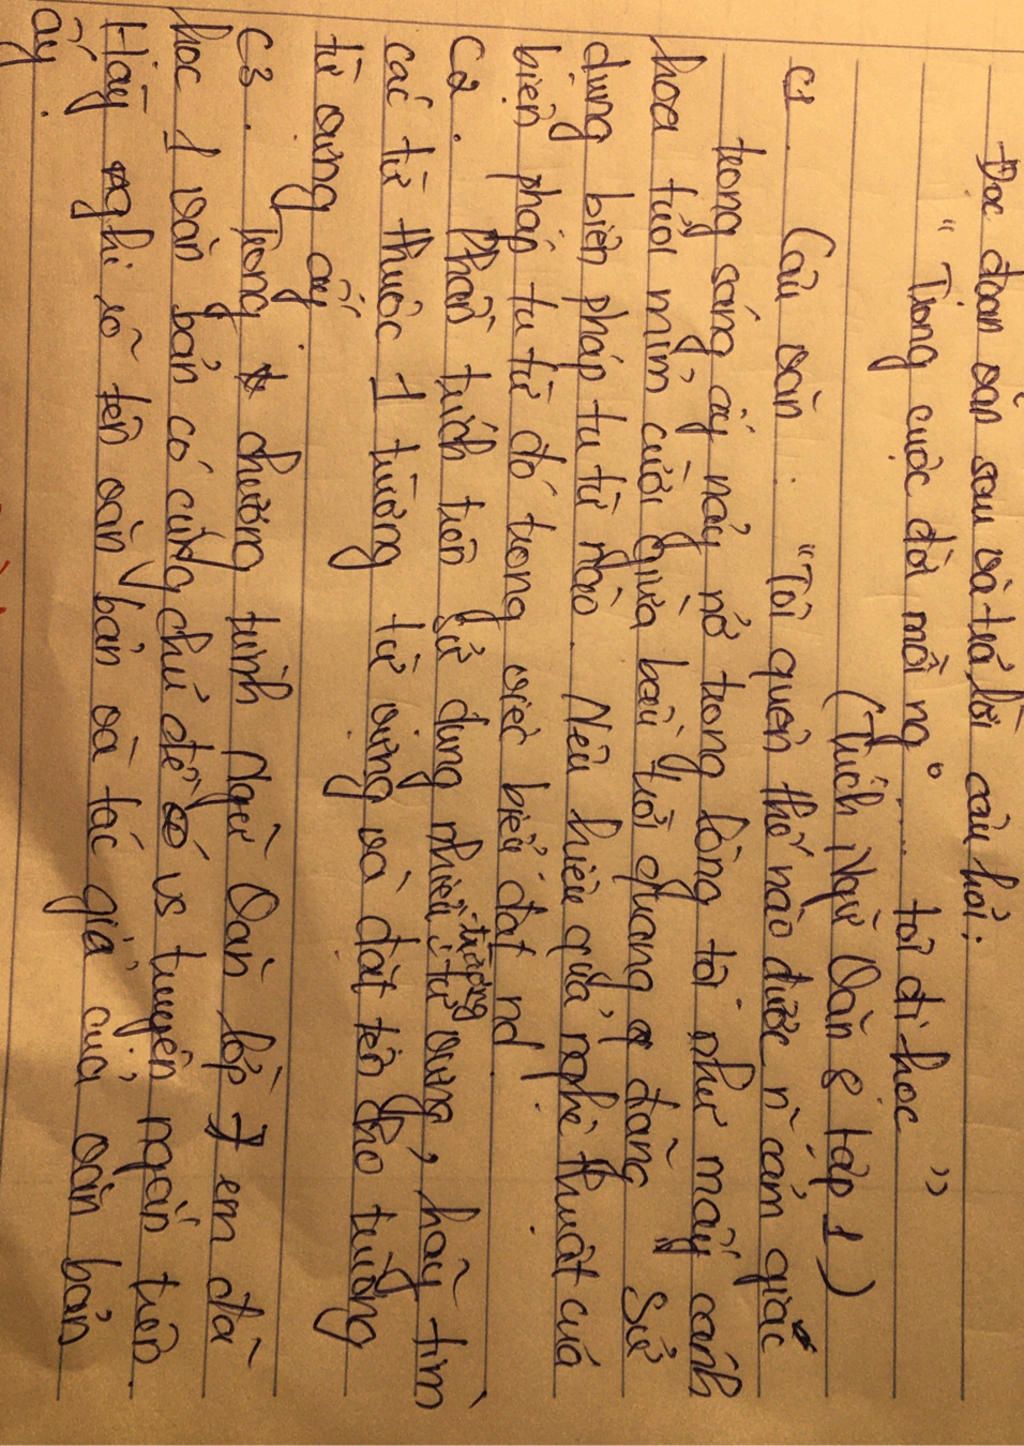 Đọc đoạn văn sau và trả lời câu hỏi:
"Trong cuộc đời mỗi ng° .... tôi đi học "
(Trích Ngữ Văn 8 tập 1)
C1. Câu văn : "Tôi quên thế nào được n~ cảm giác
trong sáng ấy nảy nở trong lòng tôi như mấy cánh
hoa tươi mỉm cười giữa bầu trời quang đãng " Sử
dụng biện pháp tu từ nào. Nêu hiệu quả nghệ thuật của
biện pháp tu từ đó trong việc biểu đạt nd.
C2. Phần trích trên sử dụng nhiều trường từ vựng, hãy tìm
các từ thuộc 1 trường từ vựng và đặt tên cho trường
từ vựng ấy
C3. Trong chương trình Ngữ Văn lớp 7 em đã
học 1 văn bản có cùng chủ đề vs truyện ngắn trên.
Hãy nghi rõ tên văn bản và tác giả của văn bản
ấy.